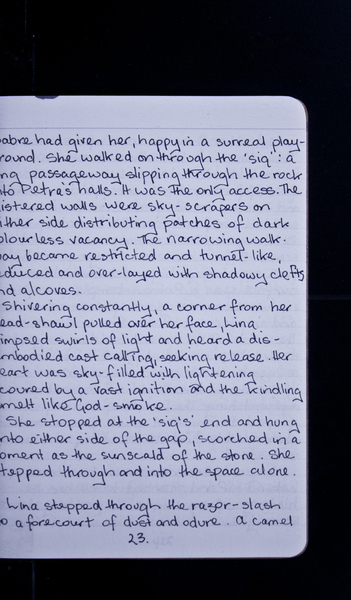 abre had given her, happy in a surreal play-
round. She walked on through the 'siq': a
ng passageway slipping through the rock
nto Petra's halls. It was the only access. The
istered walls were sky-scrapers on
ither side distributing patches of dark
olourless vacancy. The narrowing walk-
ay became restricted and tunnel-like,
educed and over-layed with shadowy clefts
nd alcoves.
Shivering constantly, a corner from her
ead-shawl pulled over her face, Lina
impsed swirls of light and heard a dis-
mbodied cast calling, seeking release. Her
eart was sky-filled with lightening
coured by a vast ignition and the kindling
melt like God-smoke.
She stopped at the 'siq's' end and hung
nto either side of the gap, scorched in a
oment as the sunscald of the stone. She
tepped through and into the space alone.
Lina stepped through the razor-slash
o a forecourt of dust and odure. A camel
23.